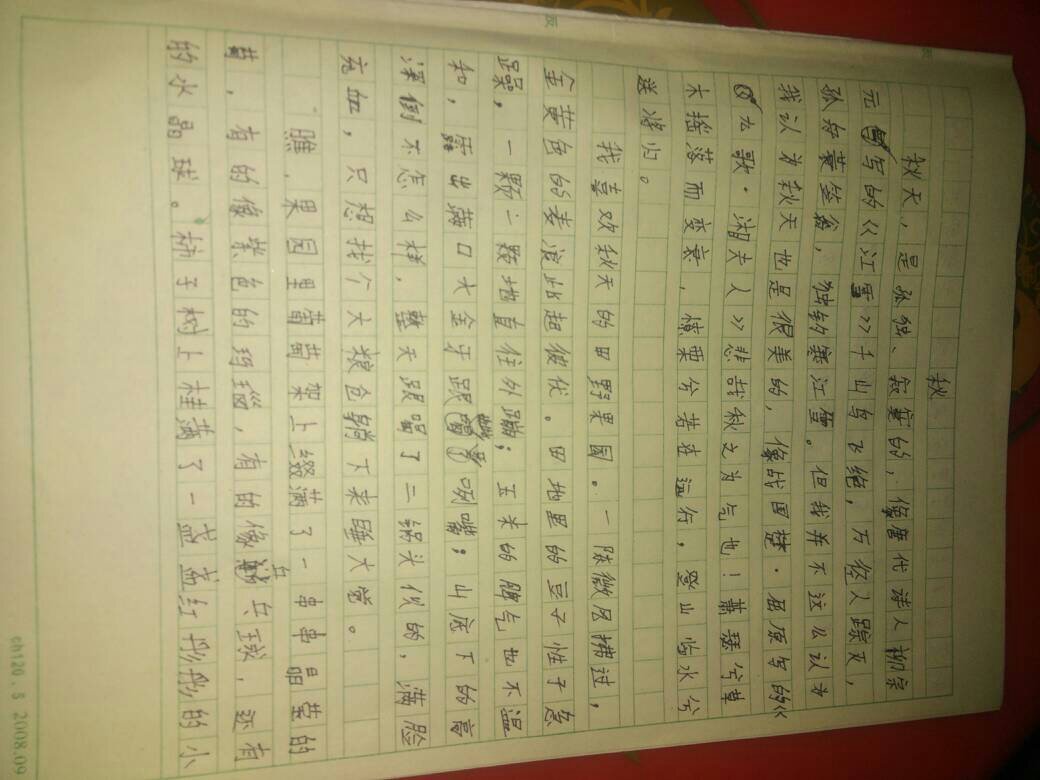 秋
秋天，是孤独、寂寞的，像唐代诗人柳宗
元写的《江雪》千山鸟飞绝，万径人踪灭，
孤舟蓑笠翁，独钓寒江雪。但我并不这么认为
我认为秋天也是很美的，像战国楚·屈原写的《
九歌·湘夫人》悲哉秋之为气也！萧瑟兮草
木摇落而变衰，憭栗兮若在远行，登山临水兮
送将归。
我喜欢秋天的田野果园。一阵微风拂过，
金黄色的麦浪此起彼伏。田地里的豆子性子急
躁，一颗一颗地直往外蹦；玉米的脾气也不温
和，露出满口大金牙跟咧嘴；山底下的高
深倒不怎么样，整天跟喝了二锅头似的，满脸
充血，只想找个大粮仓躺下来睡大觉。
瞧，果园里葡萄架上缀满了一串串晶莹的
萄，有的像紫色的玛瑙，有的像乒乓球，还有
的水晶球。柿子树上挂满了一盏盏红彤彤的小
ch120.5 2008.09